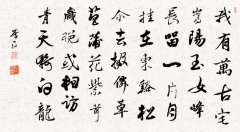 我有萬古宅
嵩陽玉女峰
長留一片月
挂在東溪松
尔去掇僊草
菖蒲花紫茸
歲晚或相訪
青天騎白龍